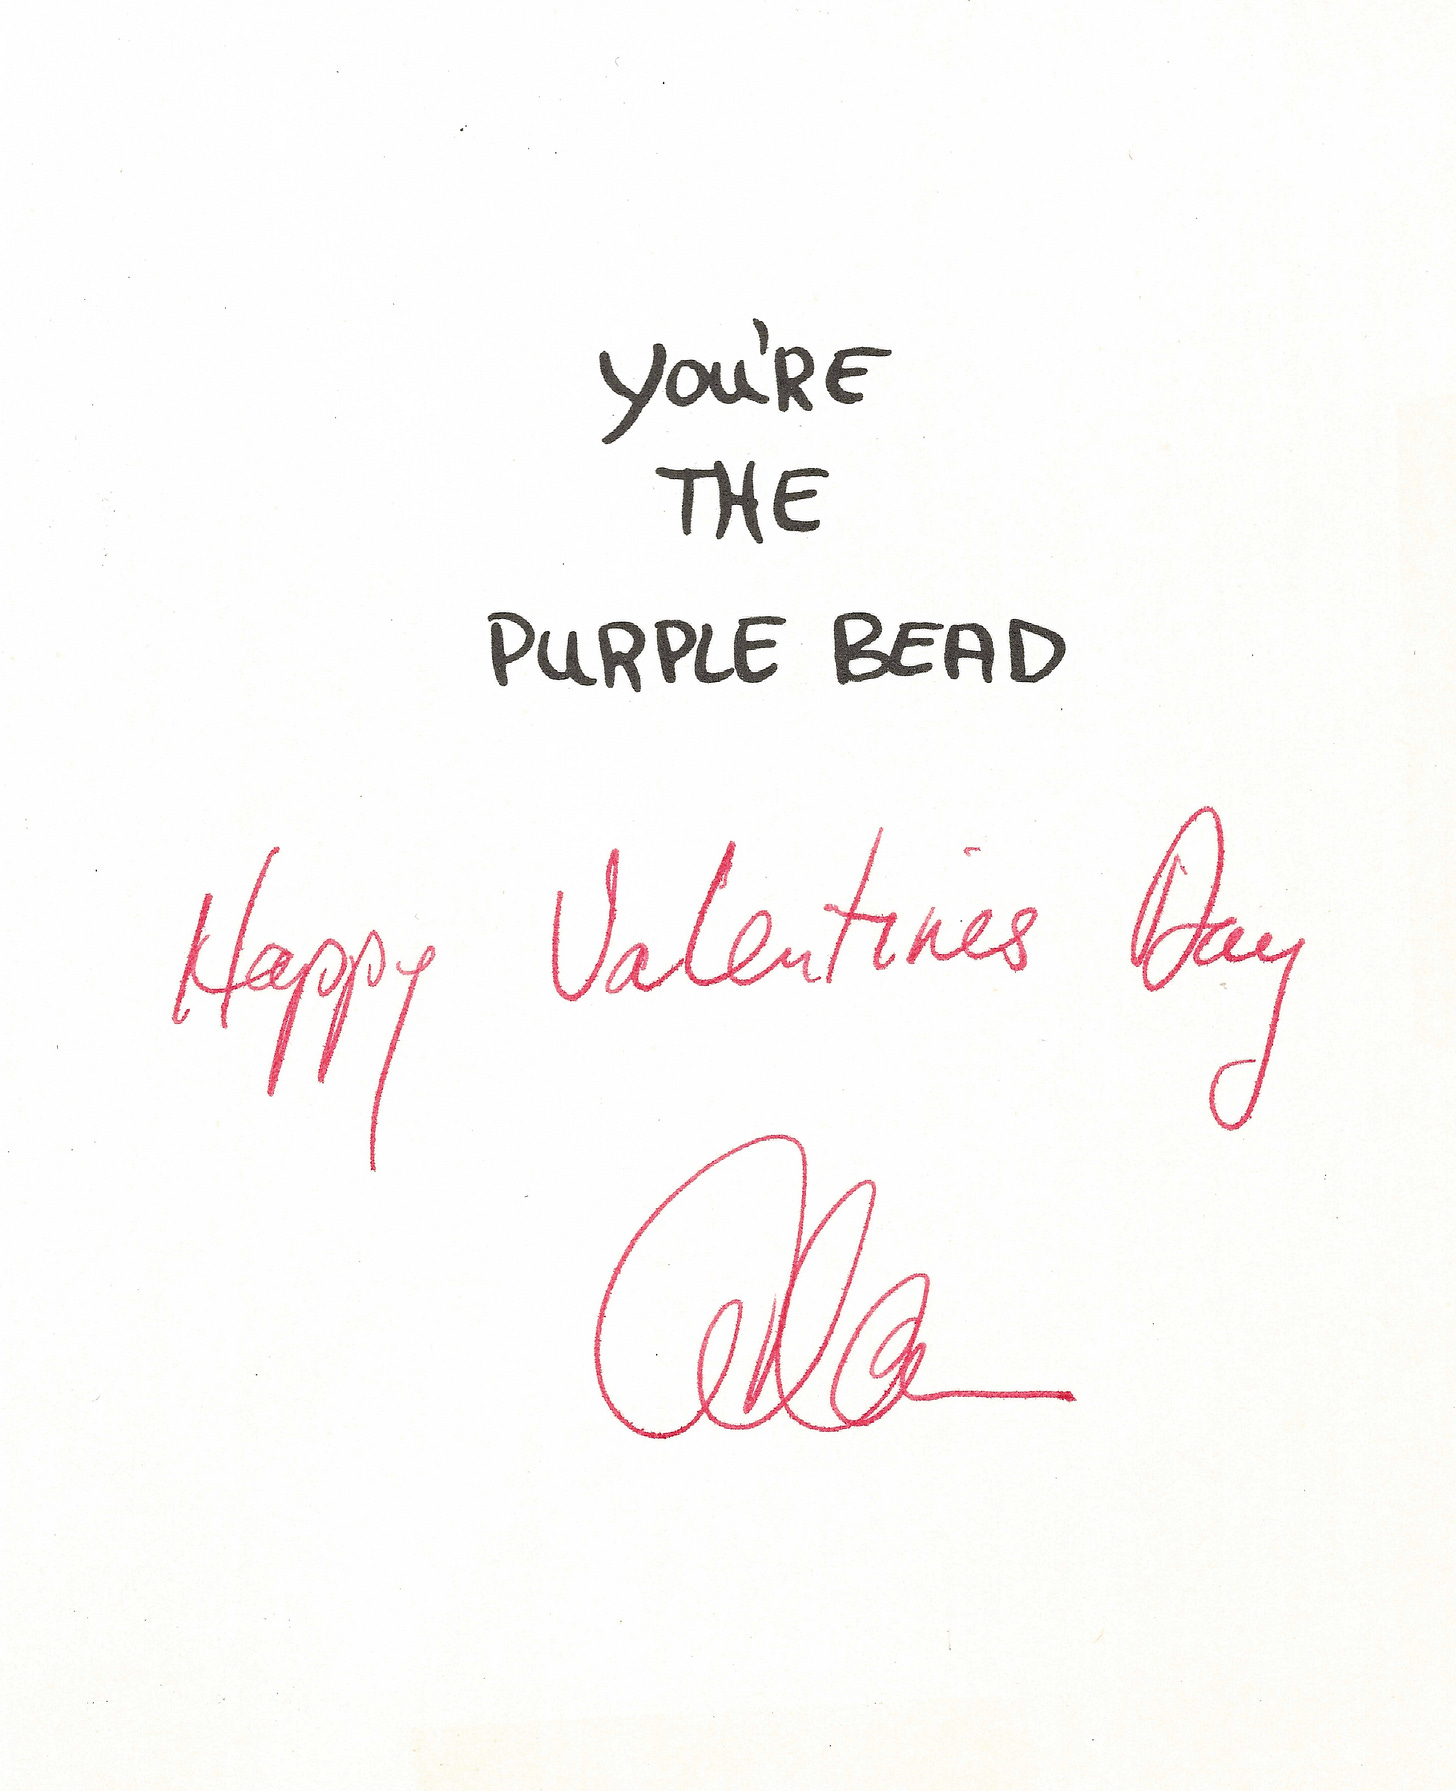 YOU'RE
THE
PURPLE BEAD
Happy Valentines Day